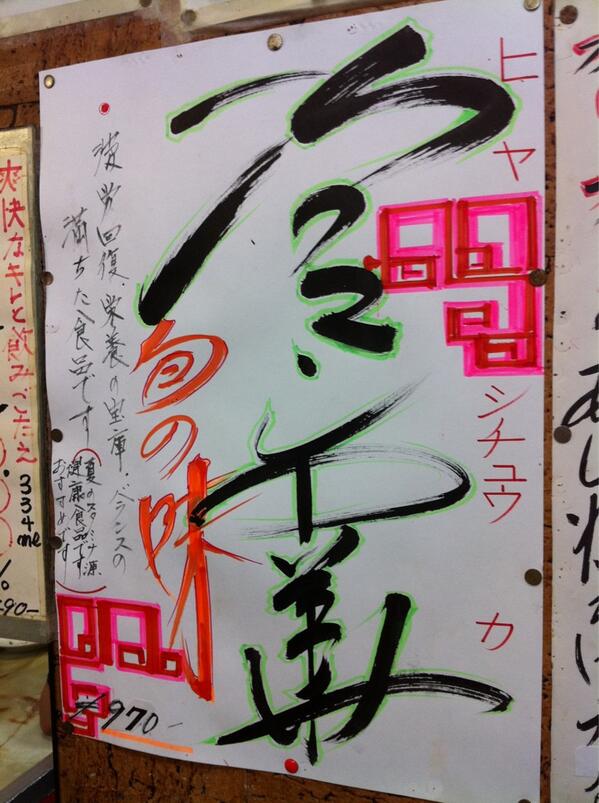 ヒヤシチュウカ
冷し中華
旬の味
疲労回復・栄養の宝庫・バランスの
満ちた食品です
(夏のスタミナ源
健康食品です
おすすめです)
¥970-
爽快なキレと飲みごたえ
334ml